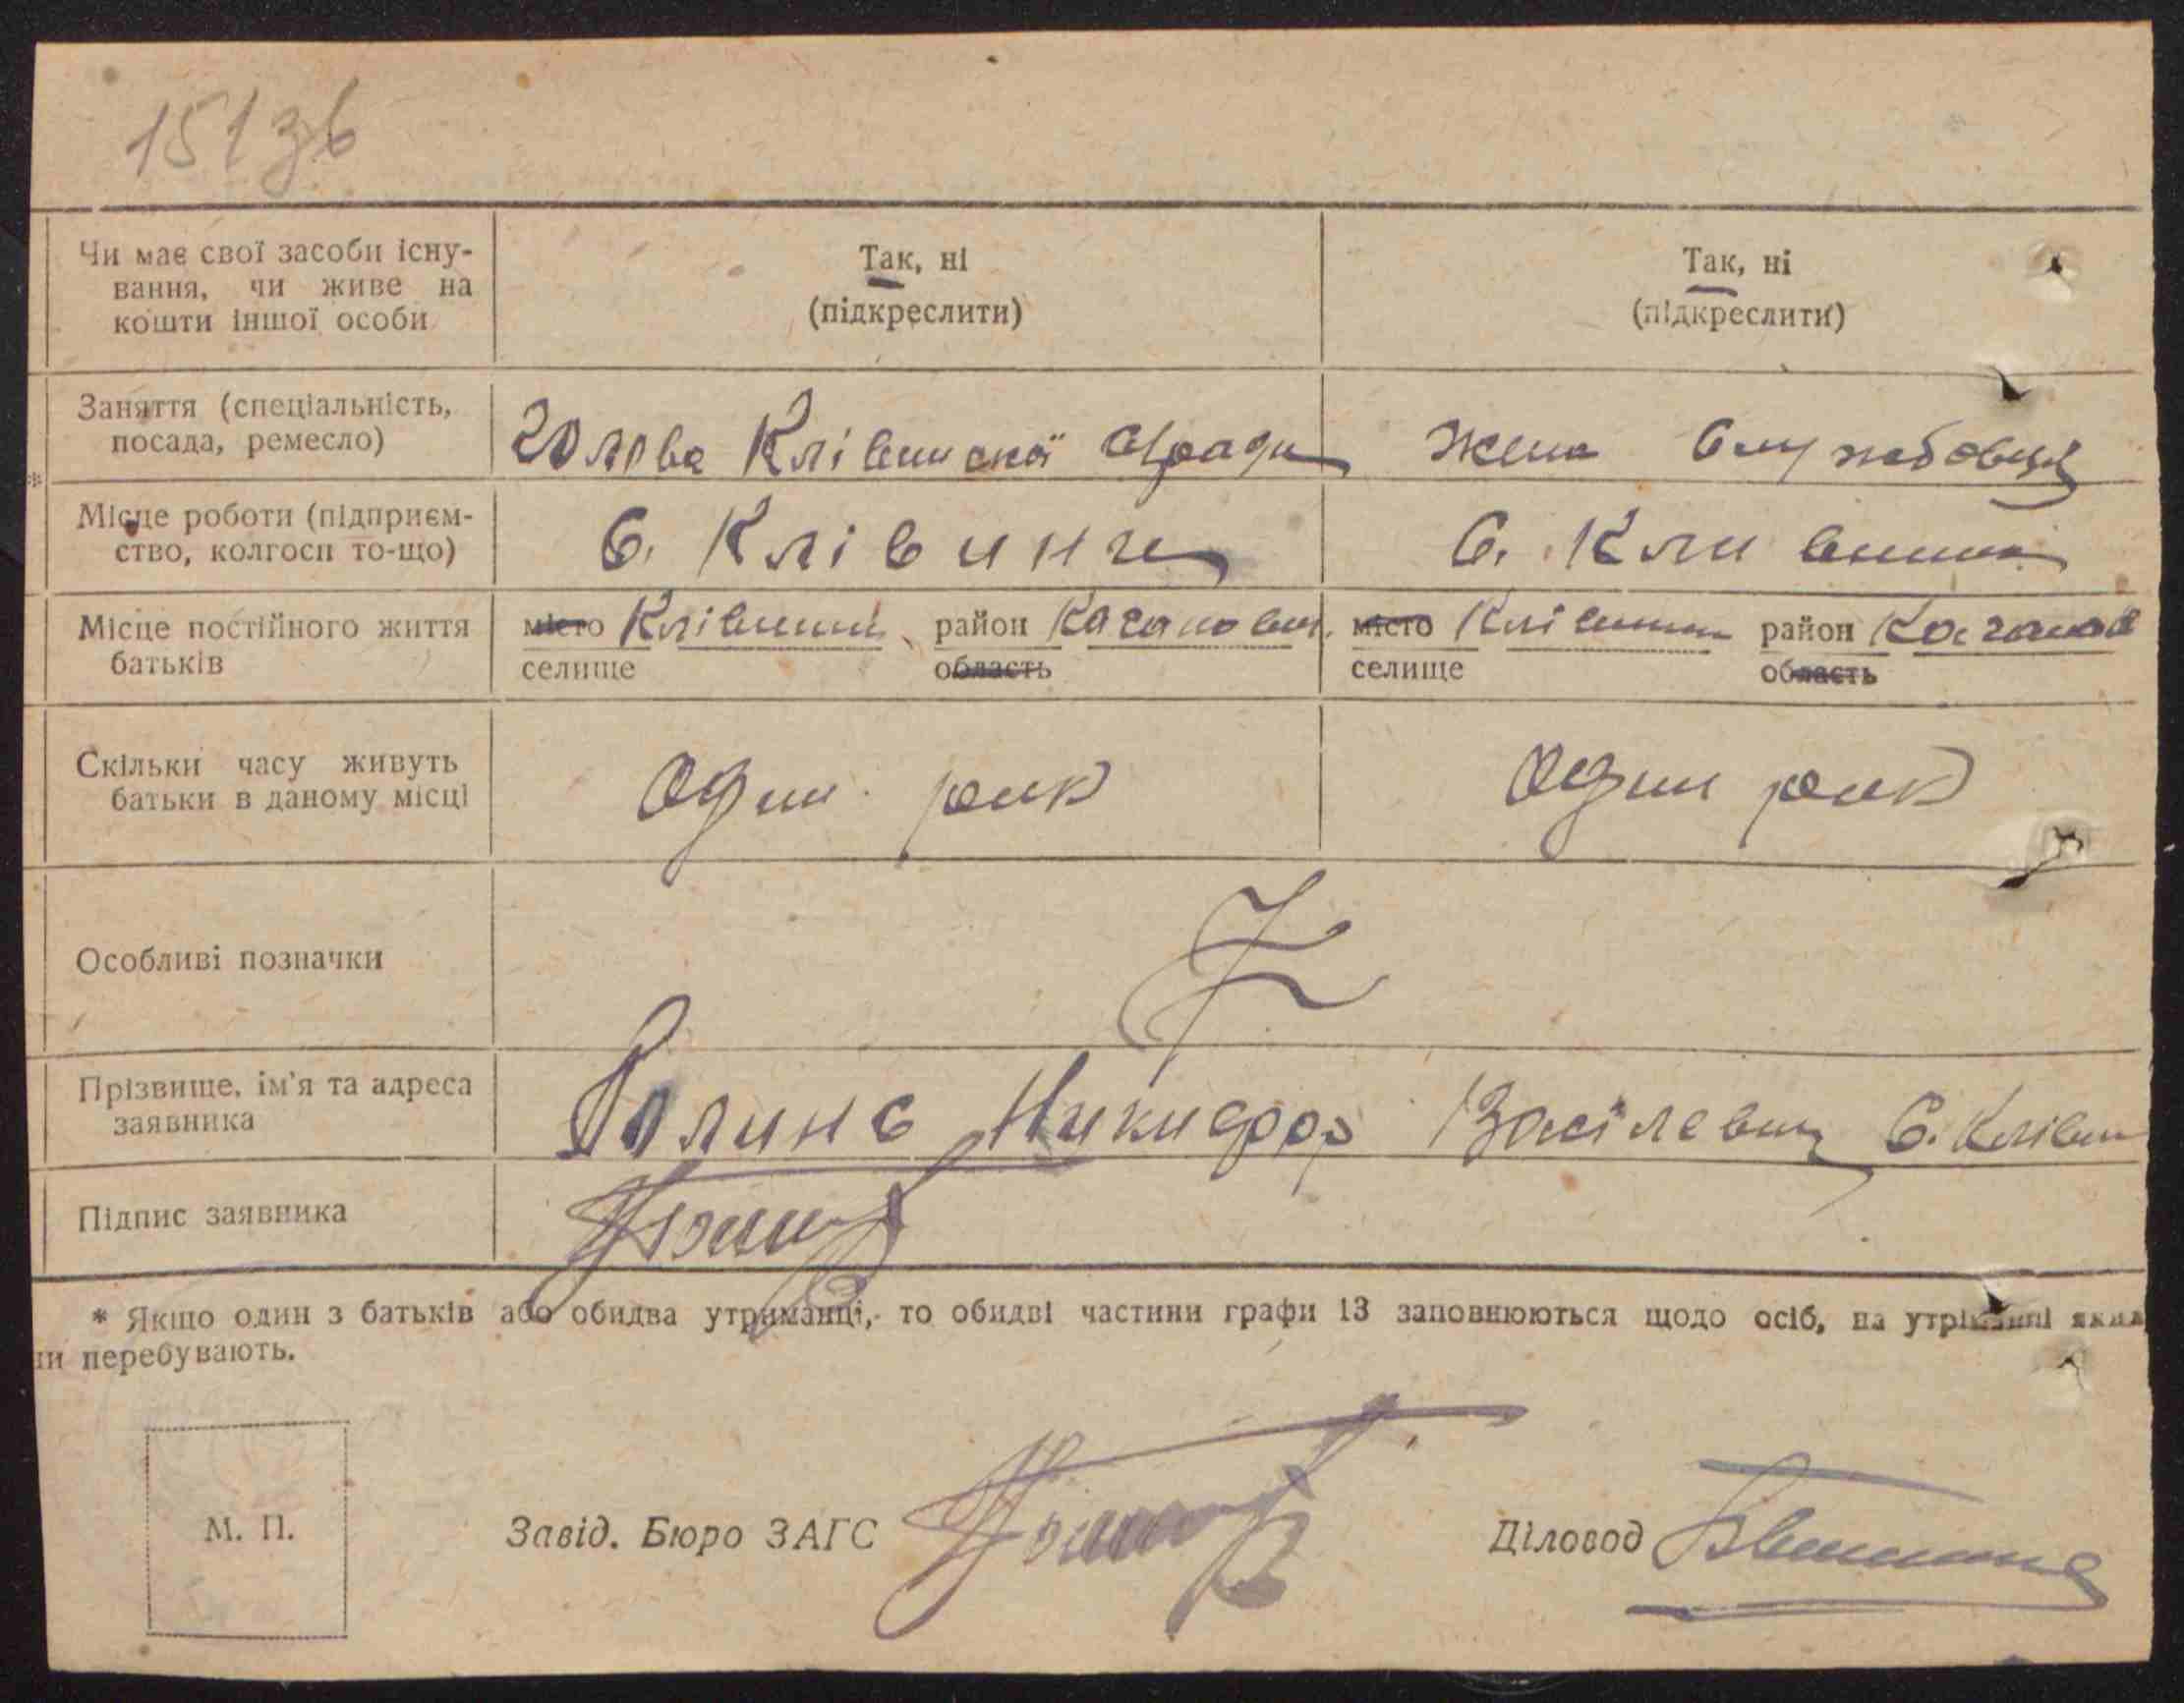 151зв
Чи має свої засоби існу-
вання, чи живе на
кошти іншої особи
Так, ні
(підкреслити)
Так, ні
(підкреслити)
Заняття (спеціальність,
посада, ремесло)
Голова Клівинскої с/ради
Жена Службовця
Місце роботи (підприєм-
ство, колгосп то-що)
С. Клівини
С. Кливини
Місце постійного життя
батьків
місто Клівини район Каганович.
селище область
місто Клівини район Каганов
селище область
Скільки часу живуть
батьки в даному місці
Один рик
Один рик
Особливі позначки
Z
Прізвище, ім'я та адреса
заявника
Никифор Васілевич С. Клівин
Підпис заявника
* Якщо один з батьків або обидва утриманці, то обидві частини графи 13 заповнюються щодо осіб, на утриманні яких
ни перебувають.
М. П.
Завід. Бюро ЗАГС
Діловод